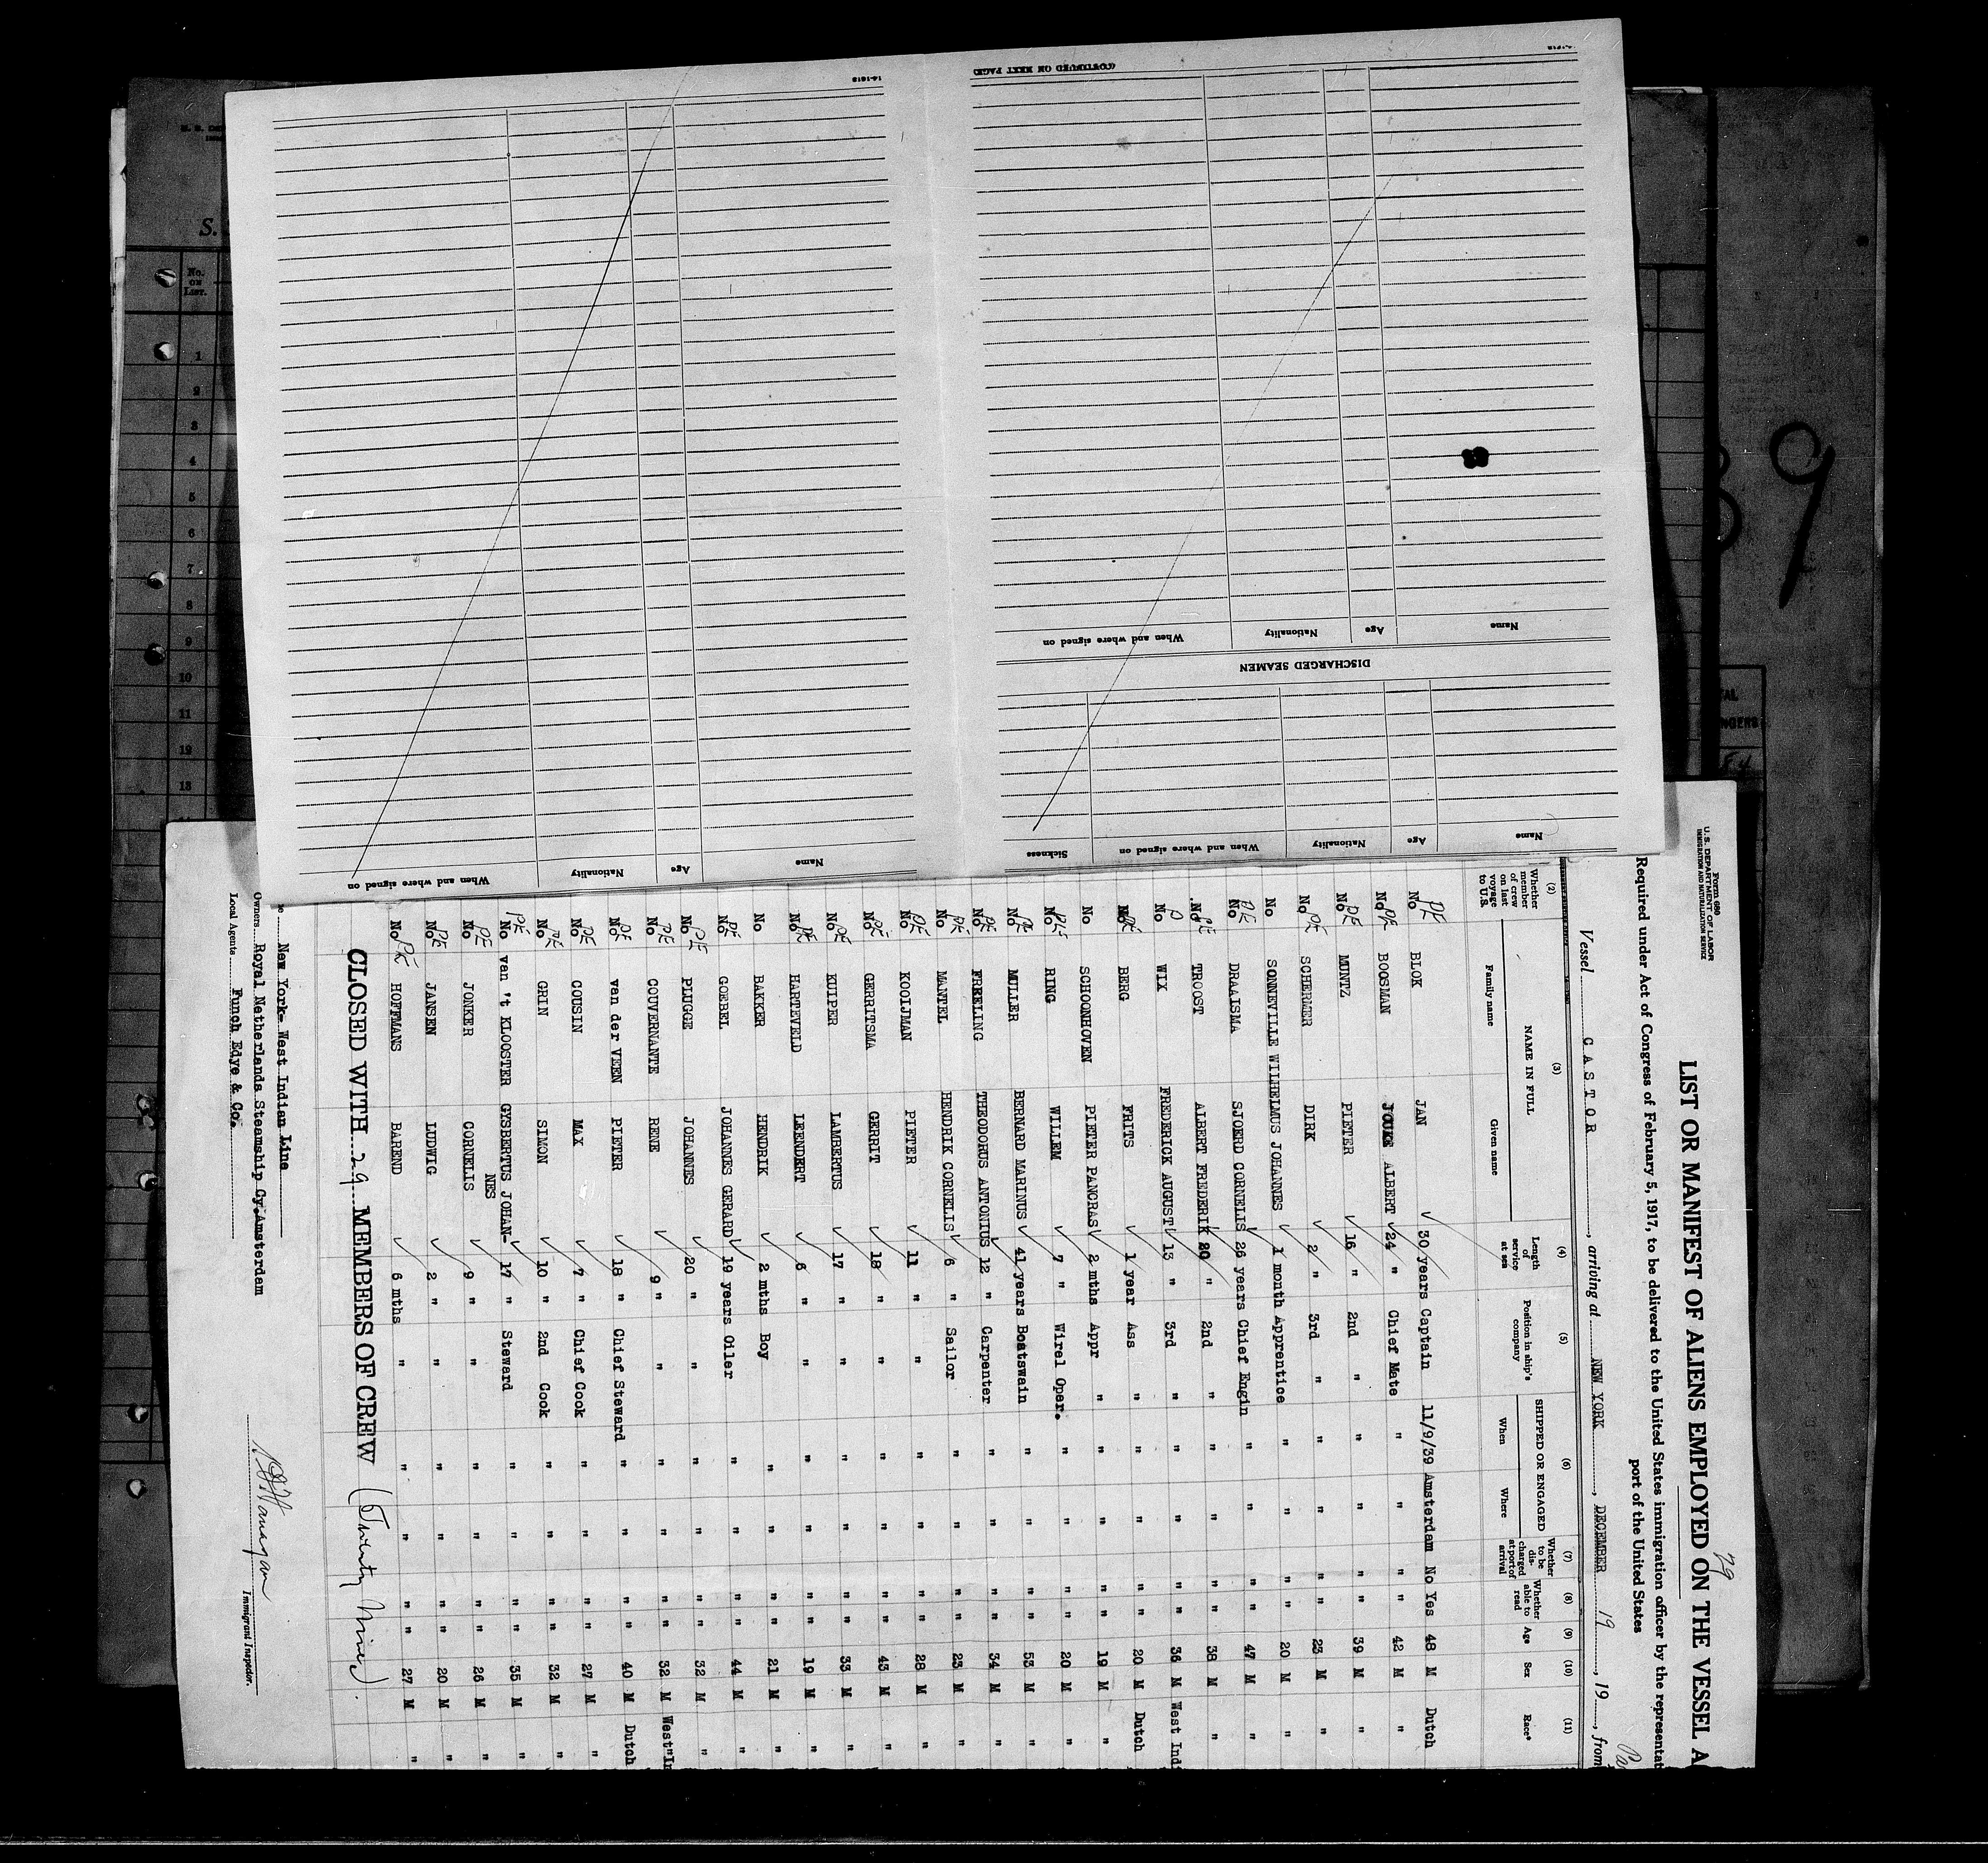 Form 680
U. S. DEPARTMENT OF LABOR
IMMIGRATION AND NATURALIZATION SERVICE
29
LIST OR MANIFEST OF ALIENS EMPLOYED ON THE VESSEL A
Required under Act of Congress of February 5, 1917, to be delivered to the United States immigration officer by the representat
port of the United States
Vessel CASTOR, arriving at NEW YORK, DECEMBER 19, 19, from
(2) (3) (4) (5) (6) (7) (8) (9) (10) (11)
Whether member of crew on last voyage to U.S. NAME IN FULL Family name Given name Length of service at sea Position in ship's company SHIPPED OR ENGAGED When Where Whether to be discharged at port of arrival Whether able to read Age Sex Race*
No PE BLOK JAN 30 years Captain 11/9/39 Amsterdam No Yes 48 M Dutch
No PE BOOSMAN JOUKE ALBERT 24 " Chief Mate " " " " 42 M "
No PE MUNTZ PIETER 16 " 2nd " " " " " 39 M "
No PE SCHERMER DIRK 2 " 3rd " " " " " 23 M "
No SONNEVILLE WILHELMUS JOHANNES 1 month Apprentice " " " " 20 M "
No PE DRAAISMA SJOERD CORNELIS 26 years Chief Engin " " " " 47 M "
No PE TROOST ALBERT FREDERIK 20 " 2nd " " " " " 38 M "
No WIX FREDERICK AUGUST 13 " 3rd " " " " " 36 M West Indi
No PE BERG FRITS 1 year Ass " " " " " 20 M Dutch
No SCHOONHOVEN PIETER PANCRAS 2 mths Appr " " " " " 19 M "
No RING WILLEM 7 " Wirel Oper. " " " " 20 M "
No PE MULLER BERNARD MARINUS 41 years Boatswain " " " " 53 M "
No PE FREELING THEODORUS ANTONIUS 12 " Carpenter " " " " 34 M "
No PE MANTEL HENDRIK CORNELIS 6 " Sailor " " " " 23 M "
No PE KOOIJMAN PIETER 11 " " " " " " 28 M "
No PE GERRITSMA GERRIT 18 " " " " " " 43 M "
No PE KUIPER LAMBERTUS 17 " " " " " " 33 M "
No PE HARTEVELD LEENDERT 6 " " " " " " 19 M "
No BAKKER HENDRIK 2 mths Boy " " " " 21 M "
No PE GOEBEL JOHANNES GERARD 19 years Oiler " " " " 44 M "
No PE PLUGGE JOHANNES 20 " " " " " " 32 M "
No PE COUVERNANTE RENE 9 " " " " " " 32 M West In
No PE van der VEEN PIETER 18 " Chief Steward " " " " 40 M Dutch
No PE COUSIN MAX 7 " Chief Cook " " " " 27 M "
No PE GRIN SIMON 10 " 2nd Cook " " " " 32 M "
No PE van 't KLOOSTER GYSBERTUS JOHAN- 17 " Steward " " " " 35 M "
NES
No PE JONKER CORNELIS 9 " " " " " " 26 M "
No PE JANSEN LUDWIG 2 " " " " " " 20 M "
No PE HOFFMANS BAREND 6 mths " " " " " 27 M "
CLOSED WITH 29 MEMBERS OF CREW (Twenty Nine).
New York- West Indian Line
Owners Royal Netherlands Steamship Cy.Amsterdam
Local Agents Funch Edye & Co.
Immigrant Inspector.
Name Age Nationality When and where signed on Sickness
DISCHARGED SEAMEN
Name Age Nationality When and where signed on
(CONTINUED ON NEXT PAGE)
Name Age Nationality When and where signed on
14-1618
S.
No. ON LIST.
1
2
3
4
5
6
7
8
9
10
11
12
13
9